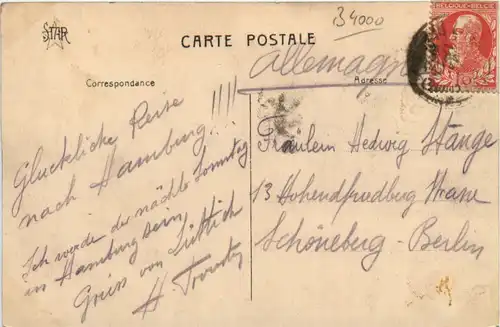 STAR
B 4000
CARTE POSTALE
BELGIQUE-BELGIË
Allemagne
Correspondance
Adresse
Glückliche Reise
nach Hamburg!!!
Ich werde der nächste Sonntag
in Hamburg sein
Gruss von Lüttich
H.
Fräulein Hedwig Stange
13 Hohenfriedberg Strasse
Schöneberg-Berlin